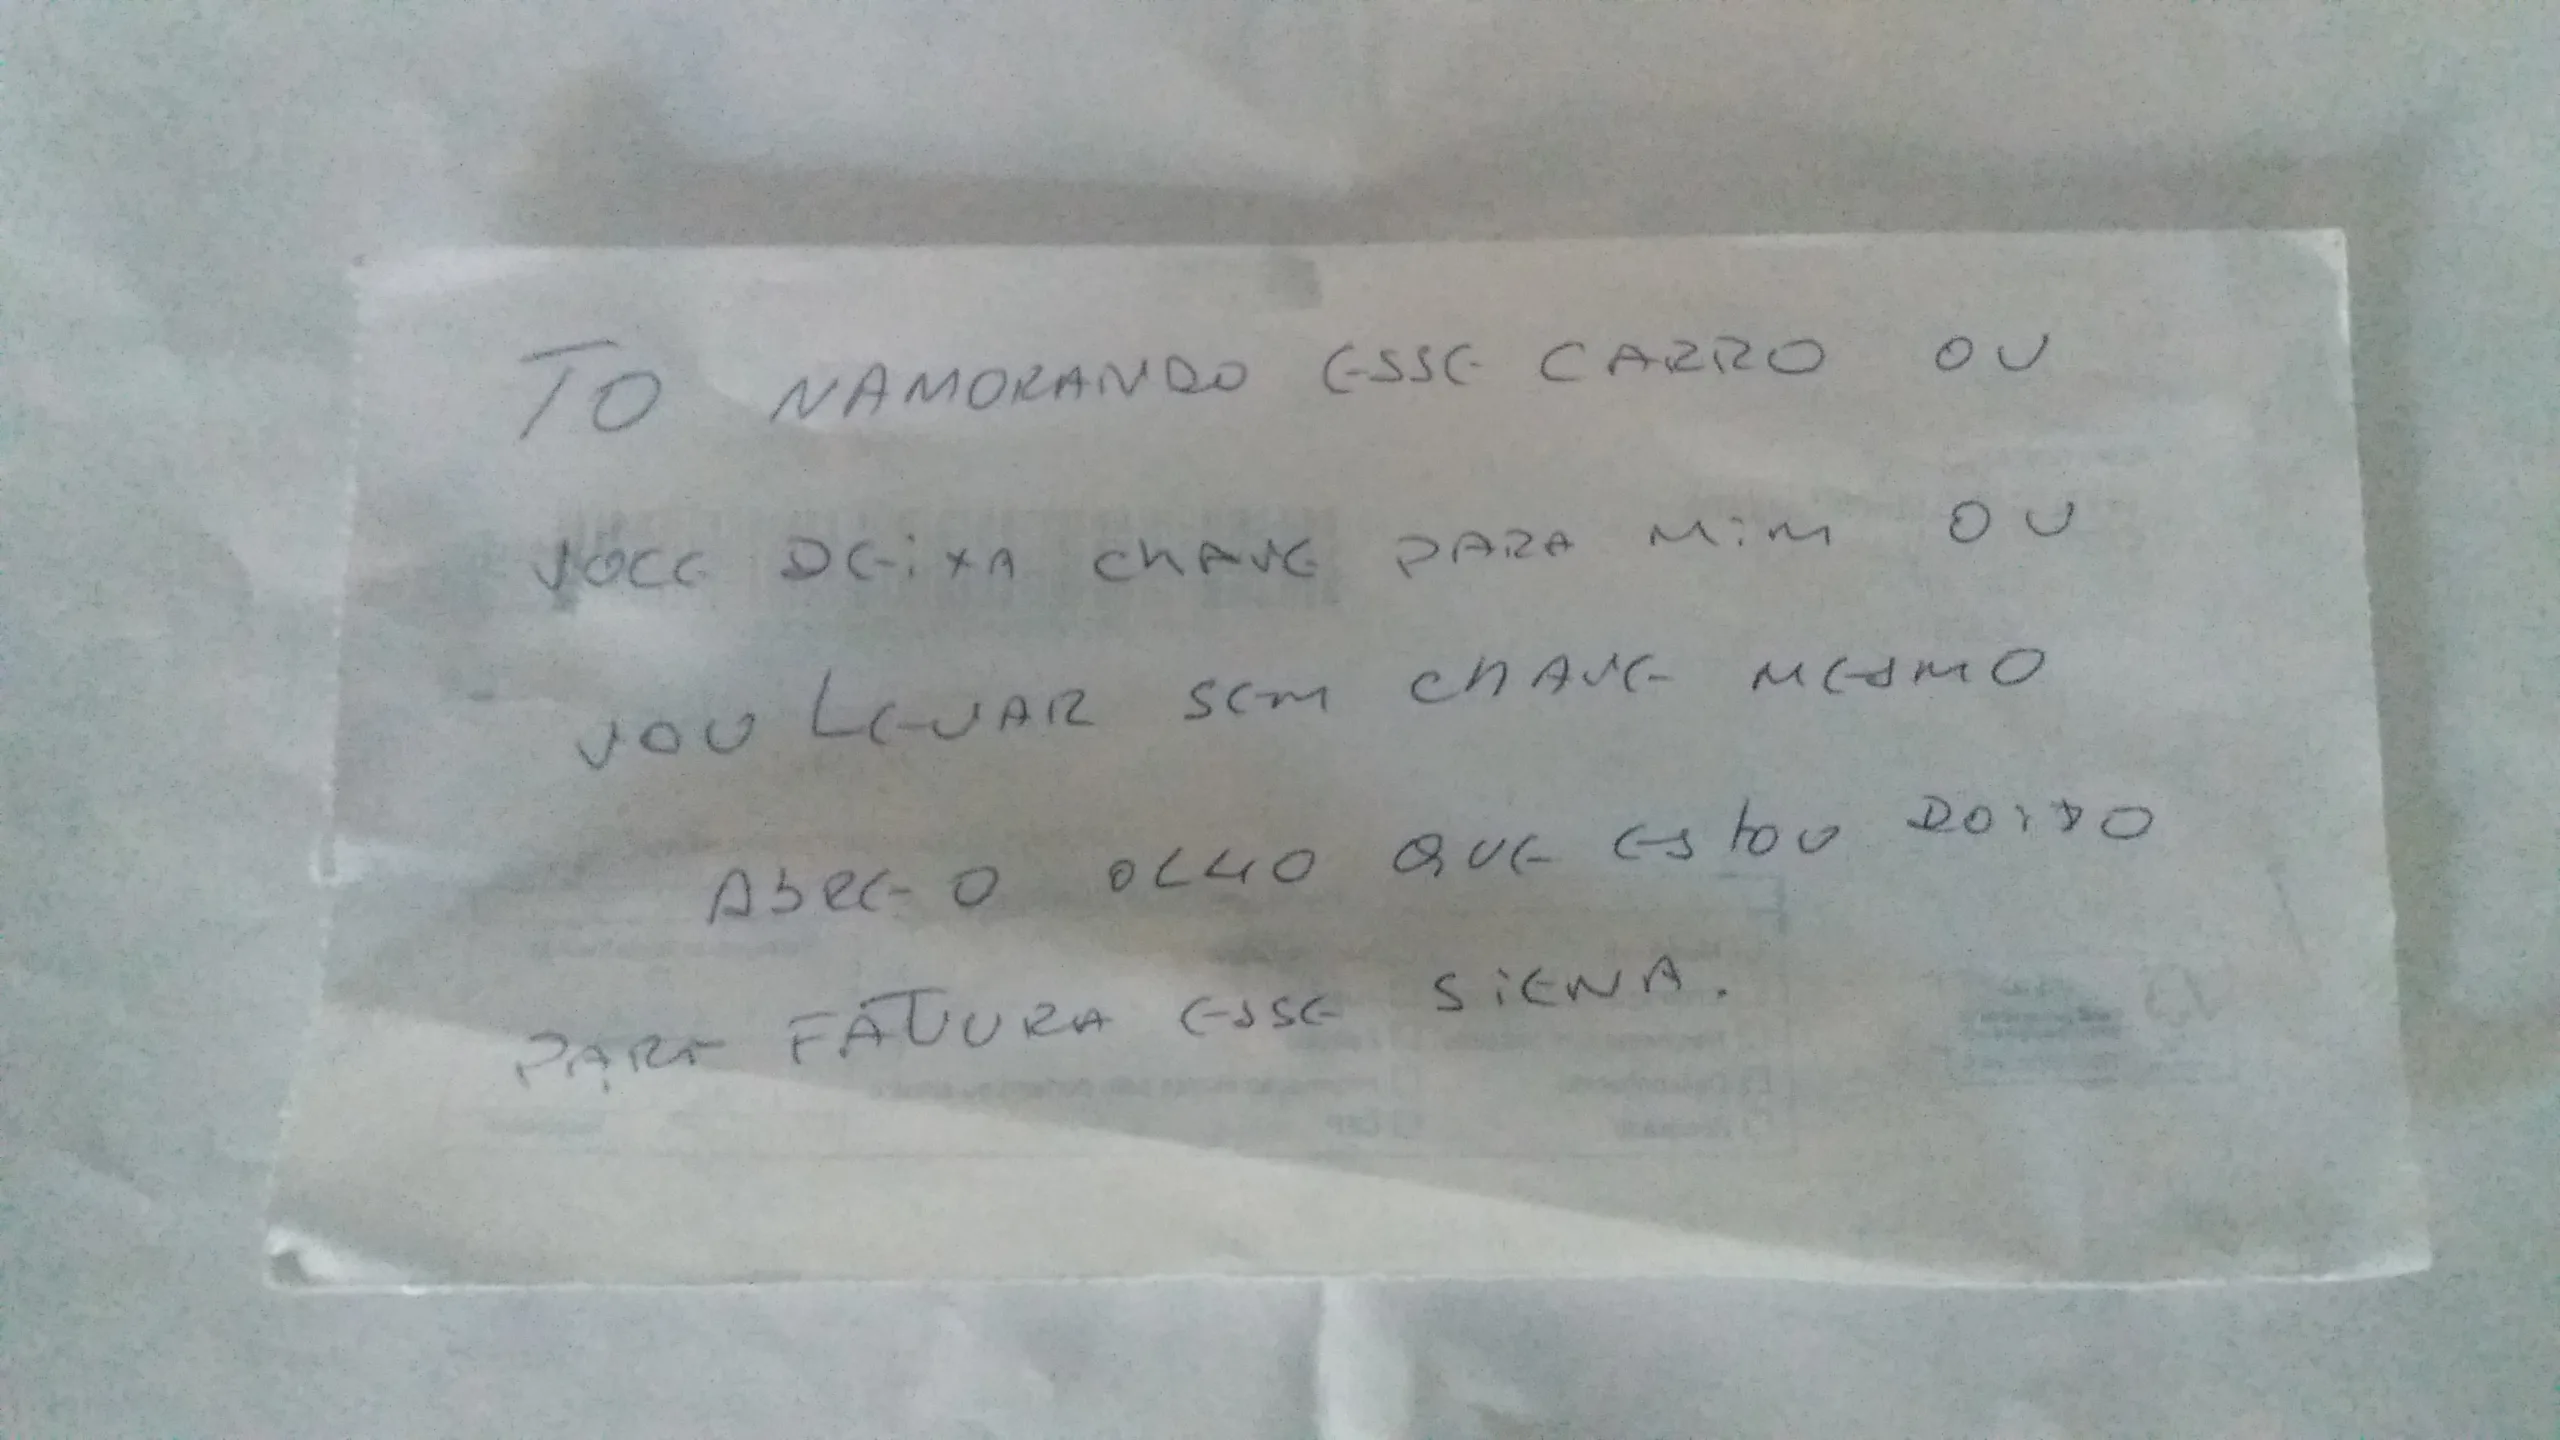 TO NAMORANDO ESSE CARRO OU
VOCE DEIXA CHAVE PARA MIM OU
VOU LEVAR SEM CHAVE MESMO
ABRE O OLHO QUE ESTOU DOIDO
PARA FATURA ESSE SIENA.